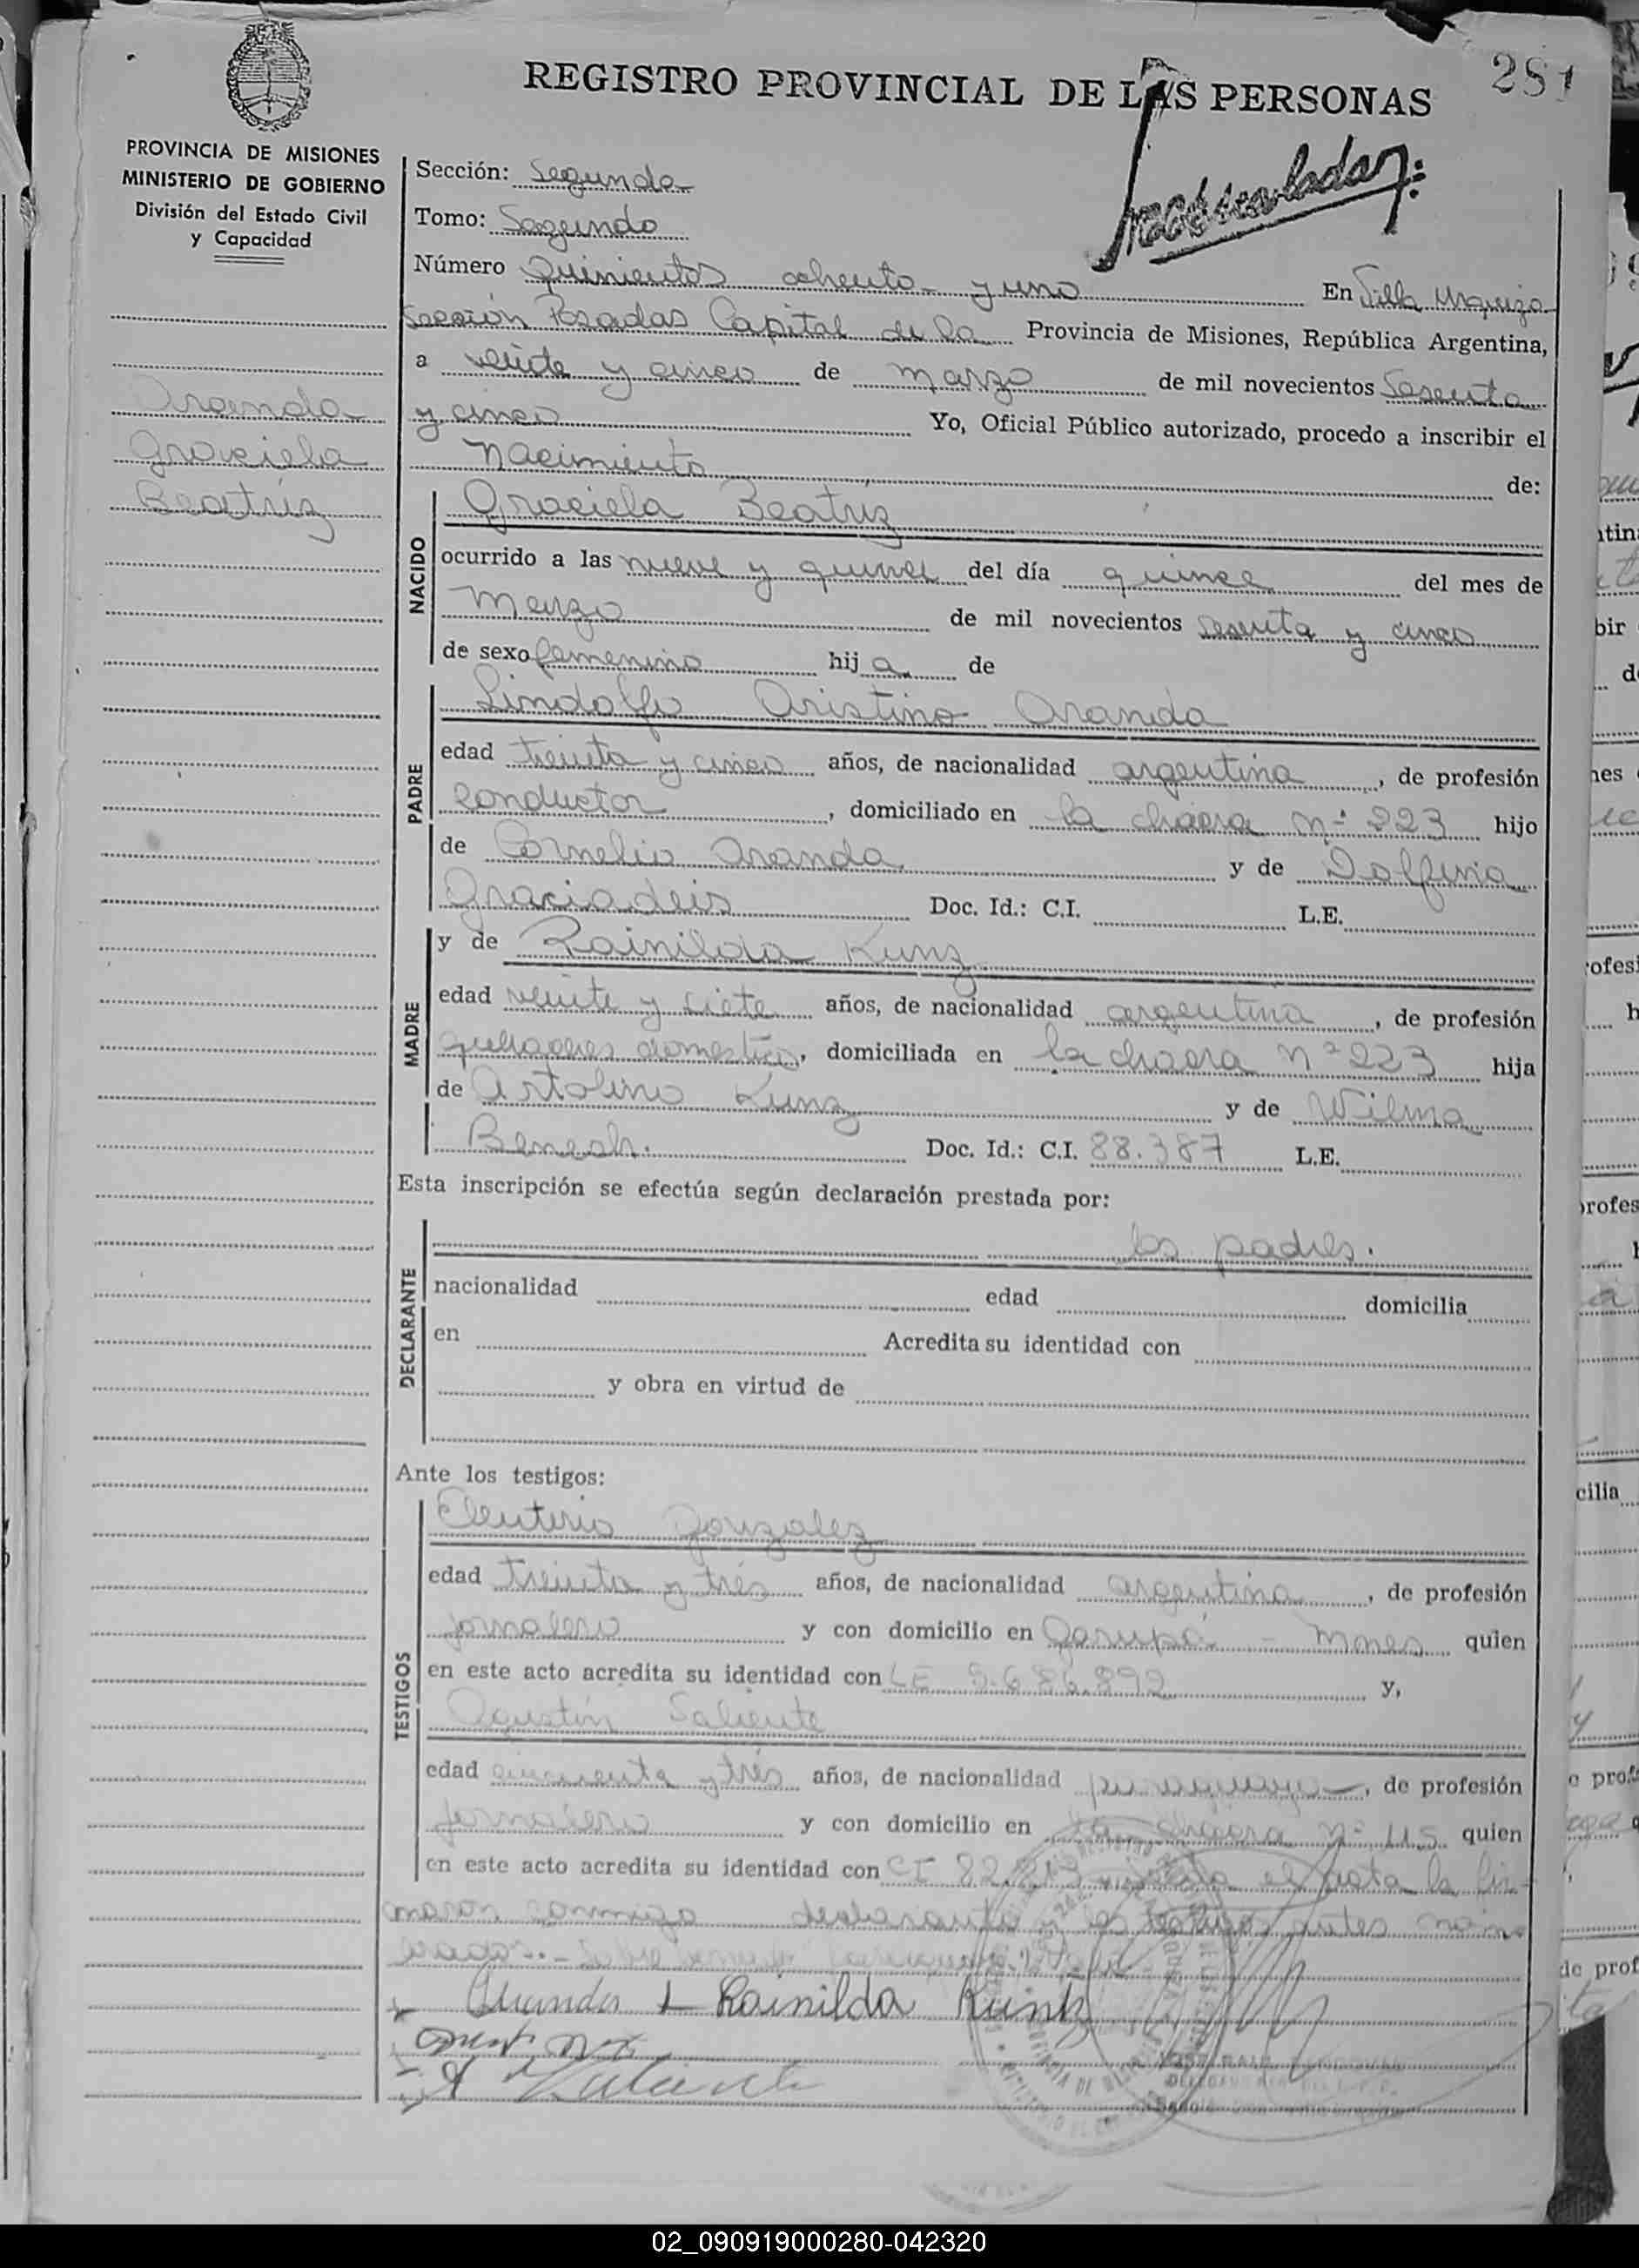 281
REGISTRO PROVINCIAL DE LAS PERSONAS
PROVINCIA DE MISIONES
MINISTERIO DE GOBIERNO
División del Estado Civil
y Capacidad
Sección: Segunda
Tomo: Segundo
Número quinientos ochenta y uno En Villa Urquiza
Sección Posadas Capital de la Provincia de Misiones, República Argentina,
a veinte y cinco de marzo de mil novecientos Sesenta
y cinco Yo, Oficial Público autorizado, procedo a inscribir el
nacimiento de:
Aranda
Graciela
Beatriz
NACIDO
Graciela Beatriz
ocurrido a las nueve y quince del día quince del mes de
Marzo de mil novecientos sesenta y cinco
de sexo femenino hija de
PADRE
Lindolfo Aristino Aranda
edad treinta y cinco años, de nacionalidad argentina, de profesión
conductor, domiciliado en la chacra nº 223 hijo
de Cornelio Aranda y de Dolfina
Graciadeis Doc. Id.: C.I. L.E.
MADRE
y de Rainilda Kunz
edad veinte y siete años, de nacionalidad argentina, de profesión
quehaceres domesticos, domiciliada en la chacra nº 223 hija
de Artolino Kunz y de Wilma
Benesh. Doc. Id.: C.I. 88.387 L.E.
Esta inscripción se efectúa según declaración prestada por:
DECLARANTE
los padres.
nacionalidad edad domicilia
en Acredita su identidad con
y obra en virtud de
Ante los testigos:
TESTIGOS
Eleuterio Gonzalez
edad treinta y trés años, de nacionalidad argentina, de profesión
jornalero y con domicilio en Garupá - Mnes quien
en este acto acredita su identidad con LE 5.686.892 y,
Agustín Saliente
edad cincuenta y trés años, de nacionalidad paraguaya, de profesión
jornalero y con domicilio en la chacra nº 115 quien
en este acto acredita su identidad con CI 82.213 el acta la fir-
maron conmigo declarante y los testigos antes nom
brados.-
Aranda L Rainilda Kunz
02_090919000280-042320